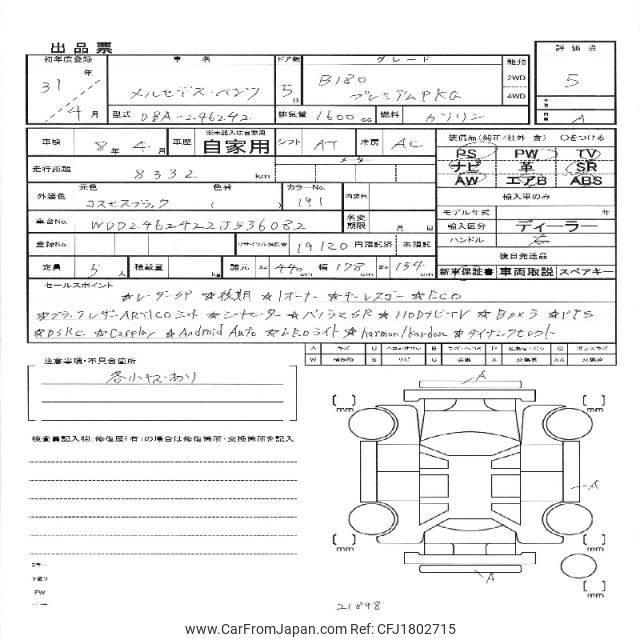 出品票
初年度登録 車名 ドア数 グレード 駆動 評価点
31年 4月 メルセデス・ベンツ 5D B180 プレミアムPKG 2WD 4WD 5
型式 DBA-246242 排気量 1600cc 燃料 ガソリン A
車検 8年4月 車歴 ※未記入は自家用 自家用 シフト AT 冷房 AC 装備品(純正/社外 含) ○をつける
PS PW TV
走行距離 メーター 8332 km ナビ 革 SR
AW エアB ABS
外装色 元色 コスモスブラック 色替 ( カラーNo. 191 内装色 輸入車のみ
モデル年式 年
車台No. WDD2462422J536082 名変期限 月 日 輸入区分 ディーラー
登録No. リサイクル預託金 19120 円預託済 未預託 ハンドル 右
後日発送品
定員 5人 積載量 kg 諸元 長さ 440cm 幅 178cm 高さ 154cm 新車保証書 車両取説 スペアキー
セールスポイント
☆レーダーSP ☆後期 ☆1オーナー ☆キーレスゴー ☆ECO
☆ブラックレザーARTICOシート ☆シートヒーター ☆パノラマSR ☆HDDナビ・TV ☆Bカメラ ☆PTS
☆DSRC ☆Carplay ☆Android Auto ☆LEDライト ☆harman/kardon ☆ダイナミックセレクト
注意事項・不具合箇所
各小キズあり
検査員記入欄 修復歴「有」の場合は修復箇所・交換箇所を記入
A
[ ] mm
[ ] mm
A
[ ] mm
[ ] mm
A
[ ] mm
21898
www.CarFromJapan.com - CFJ1802715